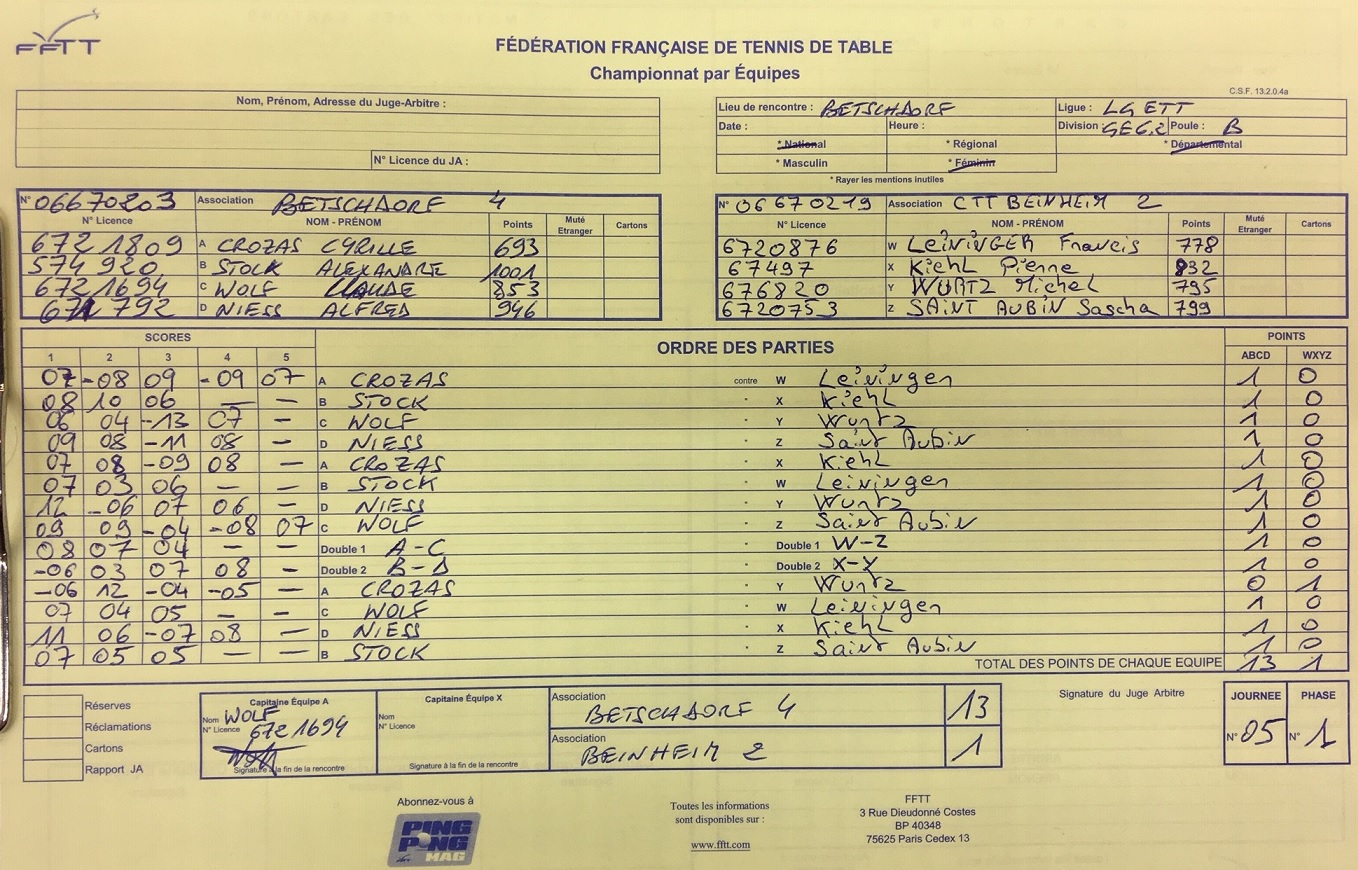 FFTT
FÉDÉRATION FRANÇAISE DE TENNIS DE TABLE
Championnat par Équipes
C.S.F. 13.2.0.4a
Nom, Prénom, Adresse du Juge-Arbitre :
N° Licence du JA :
Lieu de rencontre : BETSCHDORF Ligue : LGETT
Date : Heure : Division : GE6.2 Poule : B
* National * Régional * Départemental
* Masculin * Féminin
* Rayer les mentions inutiles
N° 06670203 Association BETSCHDORF 4
N° Licence NOM - PRÉNOM Points Muté Etranger Cartons
6721809 A CROZAS CYRILLE 693
574920 B STOCK ALEXANDRE 1001
6721694 C WOLF CLAUDE 853
671792 D NIESS ALFRED 946
N° 06670219 Association CTT BEINHEIM 2
N° Licence NOM - PRÉNOM Points Muté Etranger Cartons
6720876 W LEININGER Francis 778
67497 X Kiehl Pierre 832
676820 Y WURTZ Michel 795
6720753 Z SAINT AUBIN Sascha 799
SCORES ORDRE DES PARTIES POINTS
1 2 3 4 5 ABCD WXYZ
07 -08 09 -09 07 A CROZAS contre W Leininger 1 0
08 10 06 — — B STOCK " X Kiehl 1 0
06 04 -13 07 — C WOLF " Y Wurtz 1 0
09 08 -11 08 — D NIESS " Z Saint Aubin 1 0
07 08 -09 08 — A CROZAS " X Kiehl 1 0
07 03 06 — — B STOCK " W Leininger 1 0
12 -06 07 06 — D NIESS " Y Wurtz 1 0
09 09 -04 -08 07 C WOLF " Z Saint Aubin 1 0
08 07 04 — — Double 1 A-C " Double 1 W-Z 1 0
-06 03 07 08 — Double 2 B-D " Double 2 X-Y 1 0
-06 12 -04 -05 — A CROZAS " Y Wurtz 0 1
07 04 05 — — C WOLF " W Leininger 1 0
11 06 -07 08 — D NIESS " X Kiehl 1 0
07 05 05 — — B STOCK " Z Saint Aubin 1 0
TOTAL DES POINTS DE CHAQUE EQUIPE 13 1
Réserves
Réclamations
Cartons
Rapport JA
Capitaine Équipe A
Nom WOLF
N° Licence 6721694
Signature à la fin de la rencontre
Capitaine Équipe X
Nom
N° Licence
Signature à la fin de la rencontre
Association BETSCHDORF 4 13
Association BEINHEIM 2 1
Signature du Juge Arbitre
JOURNEE PHASE
N° 05 N° 1
Abonnez-vous à
PING PONG MAG
Toutes les informations
sont disponibles sur :
www.fftt.com
FFTT
3 Rue Dieudonné Costes
BP 40348
75625 Paris Cedex 13